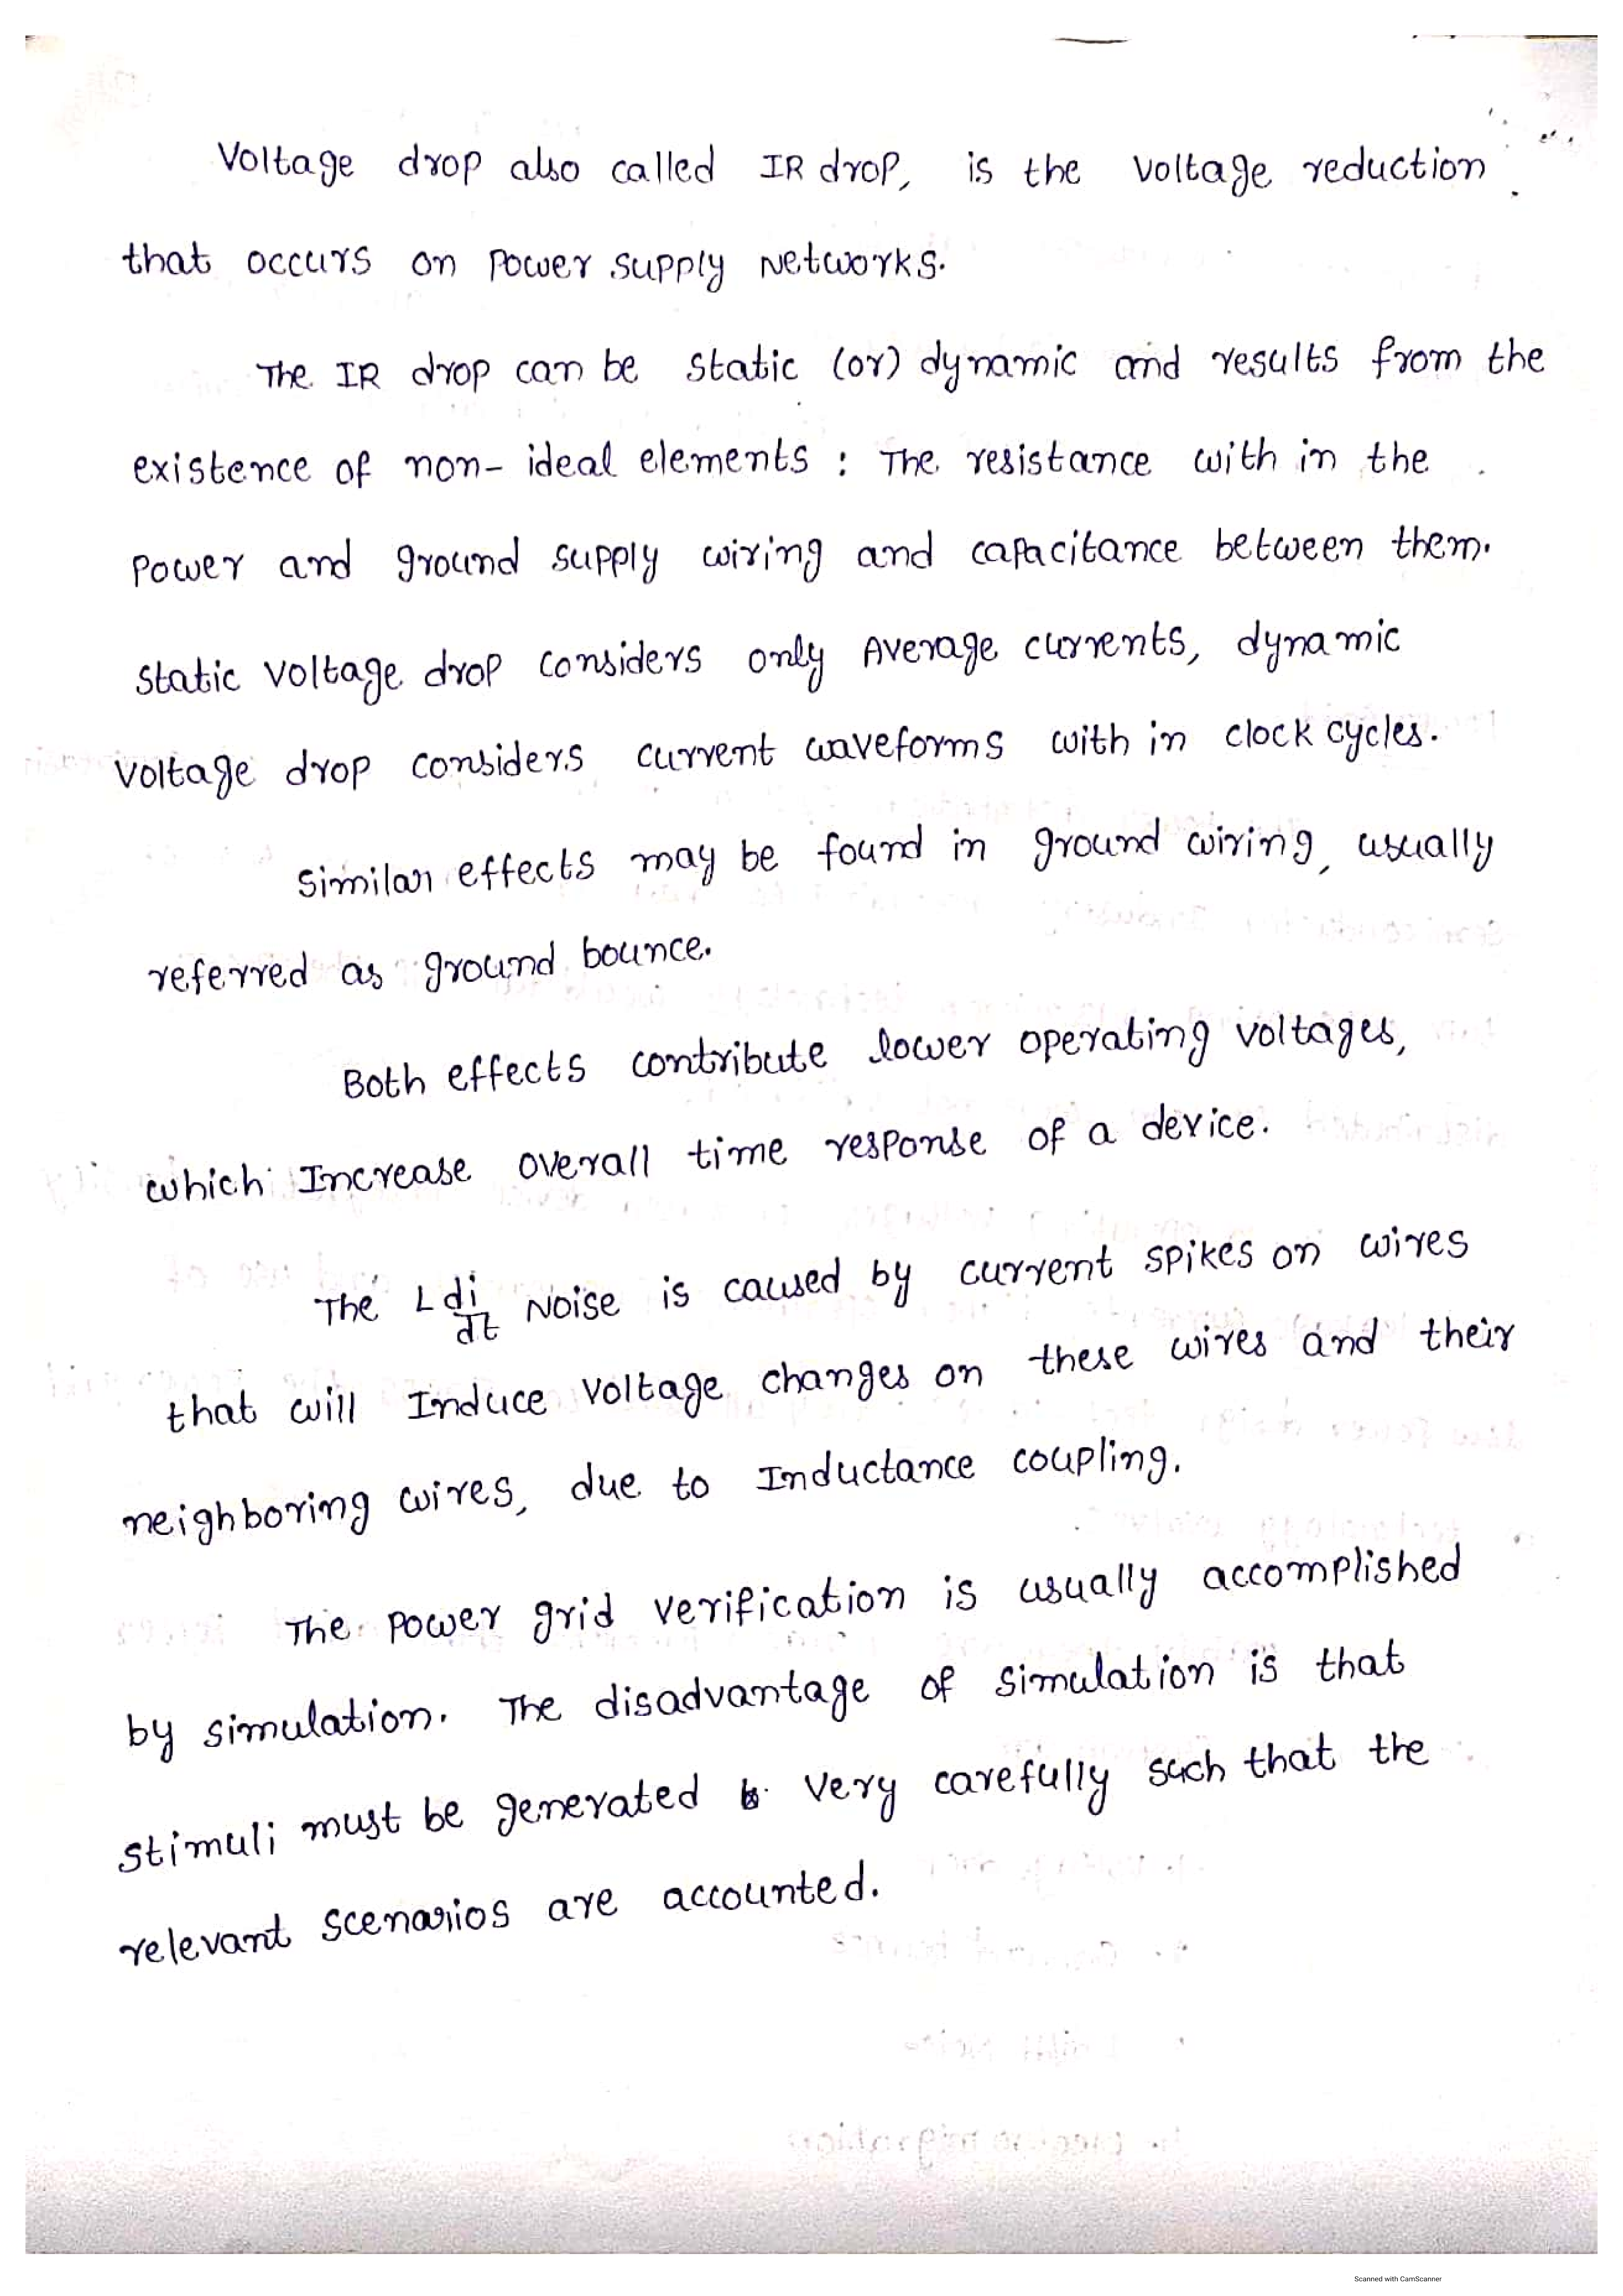 Voltage drop also called IR drop, is the voltage reduction
that occurs on power supply Networks.
The IR drop can be static (or) dynamic and results from the
existence of non-ideal elements : The resistance with in the
power and ground supply wiring and capacitance between them.
static voltage drop considers only Average currents, dynamic
voltage drop considers current waveforms with in clock cycles.
similar effects may be found in ground wiring, usually
referred as ground bounce.
Both effects contribute lower operating voltages,
which Increase overall time response of a device.
The L di/dt Noise is caused by current spikes on wires
that will Induce voltage changes on these wires and their
neighboring wires, due to Inductance coupling.
The power grid verification is usually accomplished
by simulation. The disadvantage of simulation is that
stimuli must be generated very carefully such that the
relevant scenarios are accounted.
Scanned with CamScanner